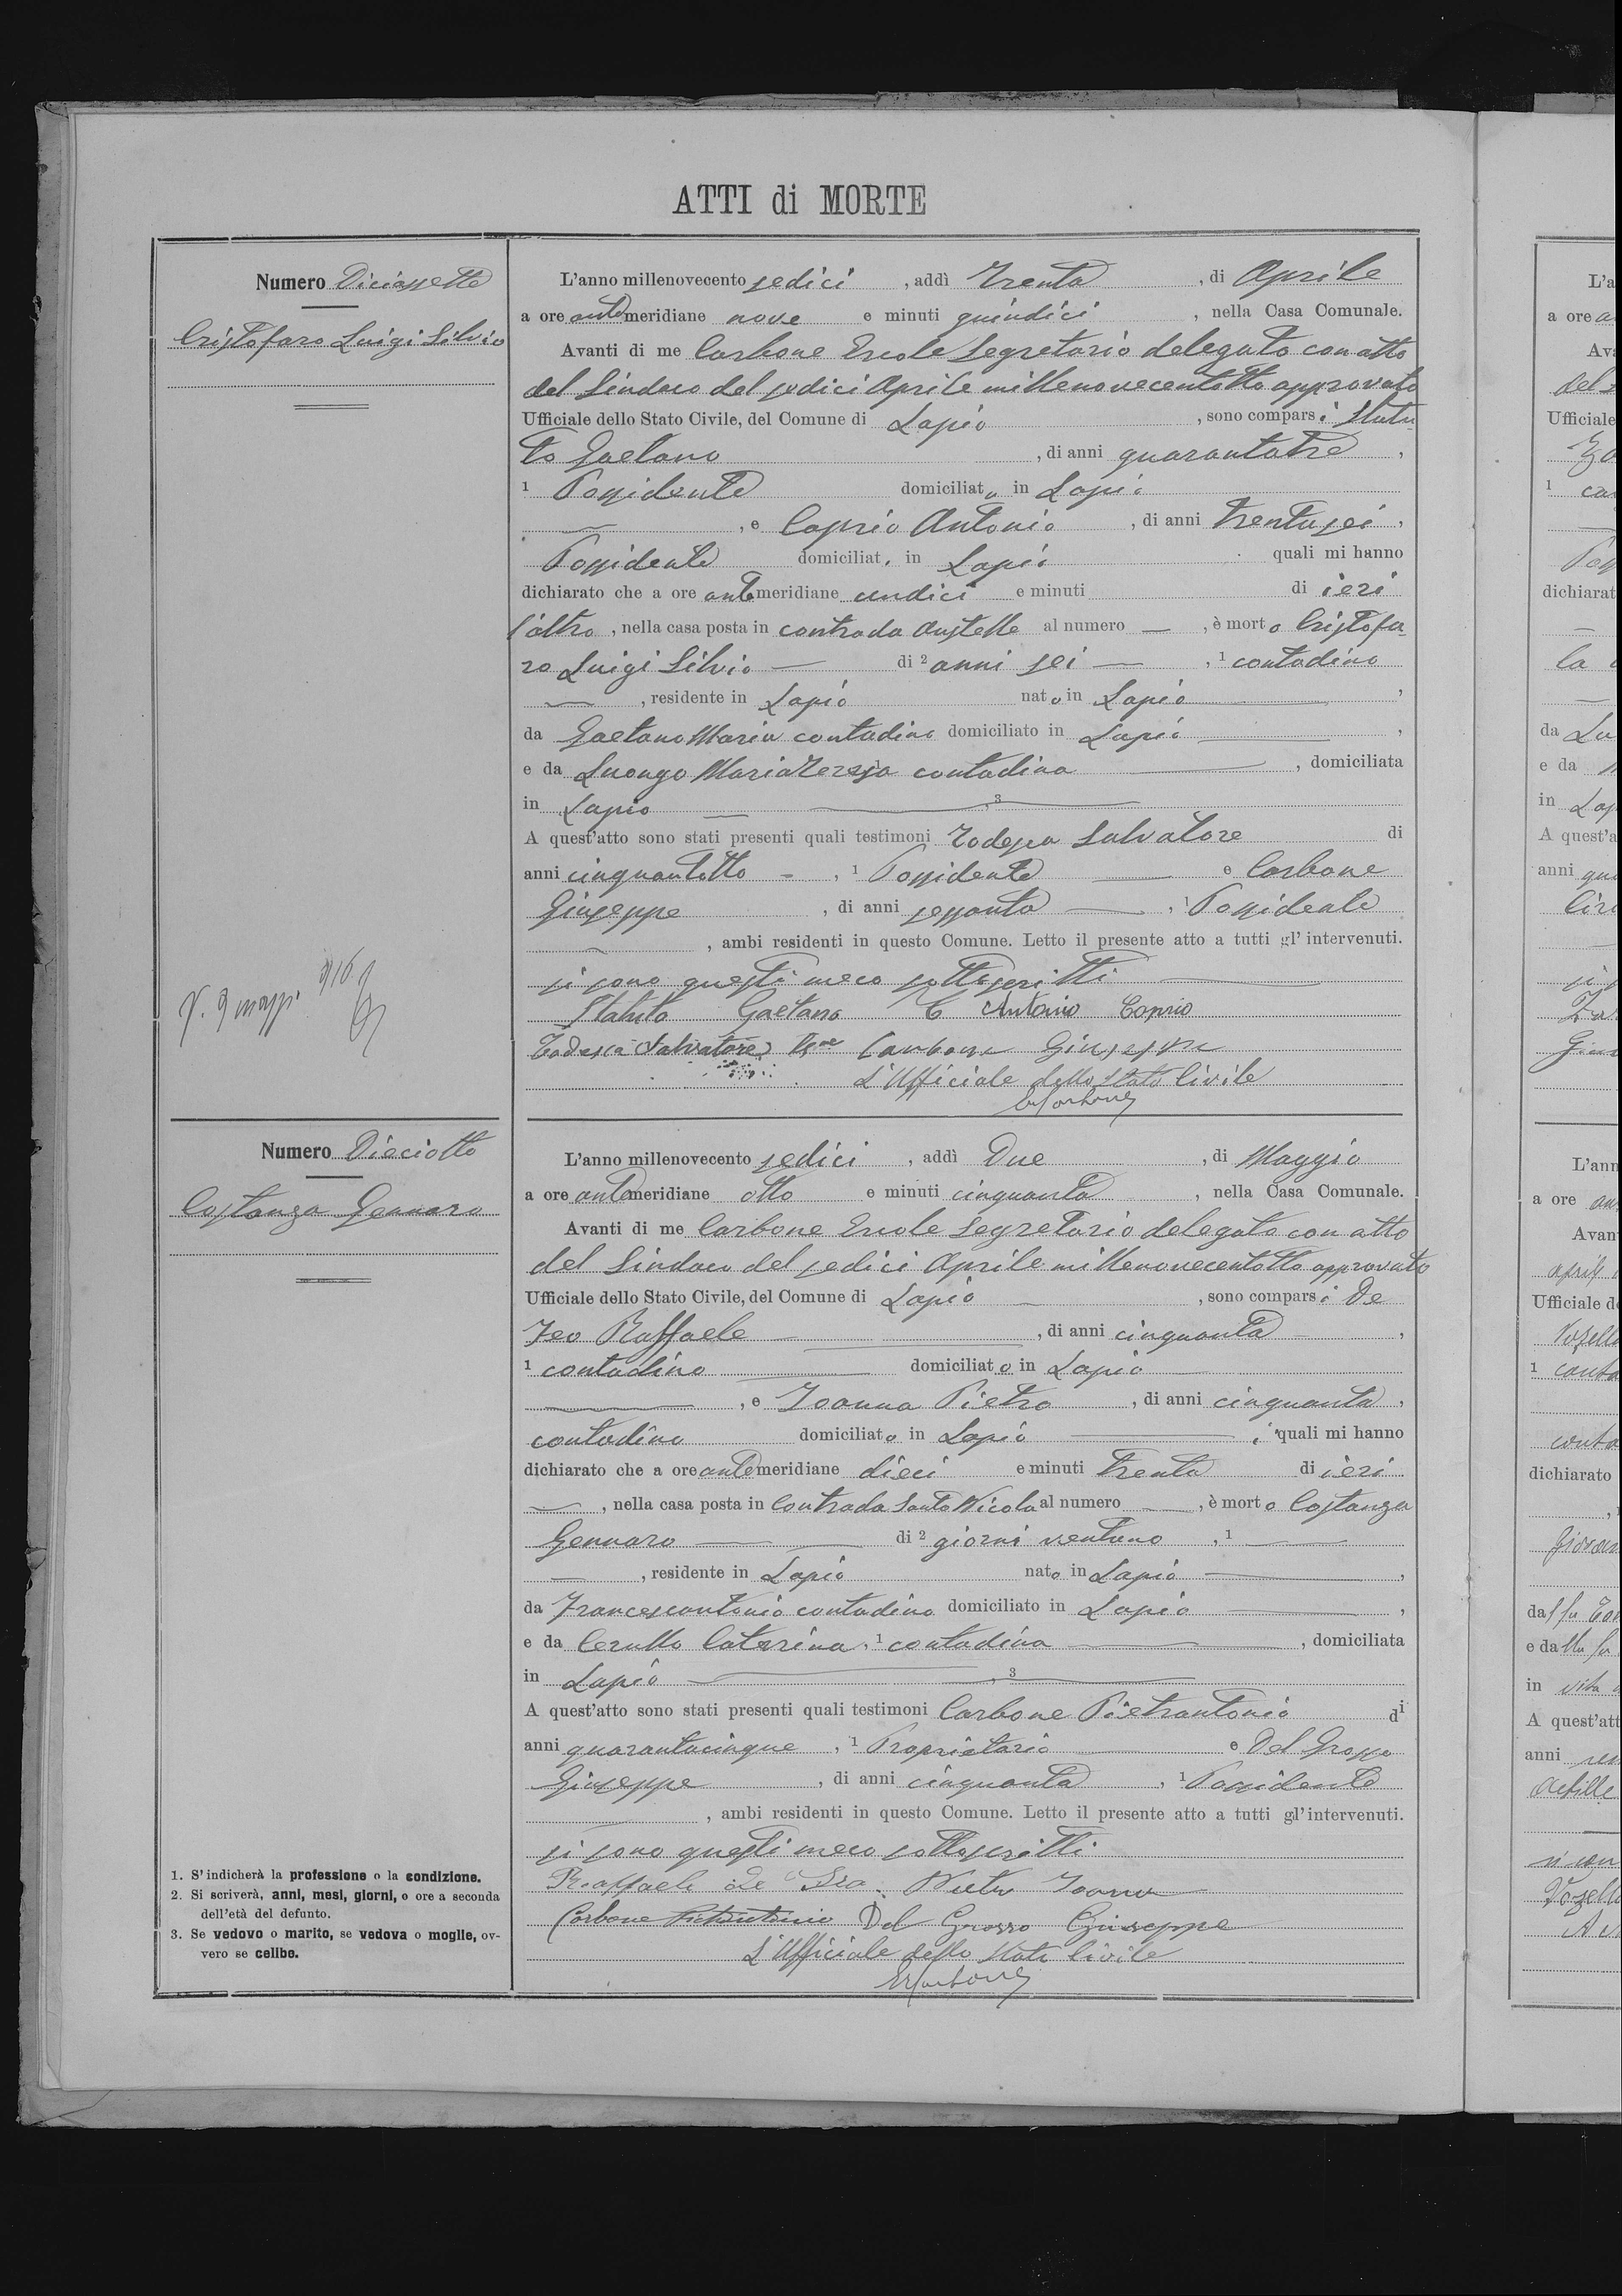 ATTI di MORTE
Numero Diciassette
Cristofaro Luigi Silvio
L'anno millenovecento sedici, addì trenta, di Aprile
a ore antemeridiane nove e minuti quindici, nella Casa Comunale.
Avanti di me Carbone Ercole Segretario delegato con atto
del Sindaco del sedici Aprile millenovecentotto approvato
Ufficiale dello Stato Civile, del Comune di Lapio, sono comparsi Statu
to Gaetano, di anni quarantatre,
1 Possidente domiciliato in Lapio
, e Caprio Antonio, di anni trentasei,
Possidente domiciliat. in Lapio quali mi hanno
dichiarato che a ore antemeridiane undici e minuti di ieri
l'altro, nella casa posta in contrada Austelle al numero —, è morto Cristofa
ro Luigi Silvio — di 2 anni sei —, 1 contadino
—, residente in Lapio nato in Lapio —,
da Gaetano Maria contadino domiciliato in Lapio —,
e da Luongo Maria Teresa contadina —, domiciliata
in Lapio — 3
A quest'atto sono stati presenti quali testimoni Todesca Salvatore di
anni cinquantotto —, 1 Possidente — e Carbone
Giuseppe, di anni sessanta —, 1 Possidente
—, ambi residenti in questo Comune. Letto il presente atto a tutti gl'intervenuti.
si sono questi meco sottoscritti —
Statuto Gaetano C Antonio Caprio
Todesca Salvatore Carbone Giuseppe
L'Ufficiale dello Stato Civile
ECarbone
V. 9 magg. 916
Numero Dieciotto
Costanza Gennaro
L'anno millenovecento sedici, addì Due, di Maggio
a ore antemeridiane otto e minuti cinquanta, nella Casa Comunale.
Avanti di me Carbone Ercole Segretario delegato con atto
del Sindaco del sedici Aprile millenovecentotto approvato
Ufficiale dello Stato Civile, del Comune di Lapio —, sono comparsi De
Feo Raffaele —, di anni cinquanta —,
1 contadino — domiciliato in Lapio —
—, e Ioanna Pietro, di anni cinquanta,
contadino domiciliato in Lapio —, i quali mi hanno
dichiarato che a ore antemeridiane dieci e minuti trenta di ieri
—, nella casa posta in Contrada Santo Nicola al numero —, è morto Costanza
Gennaro — di 2 giorni ventuno, 1 —
—, residente in Lapio nato in Lapio —,
da Francescantonio contadino domiciliato in Lapio —,
e da Cerullo Caterina, 1 contadina —, domiciliata
in Lapio — 3
A quest'atto sono stati presenti quali testimoni Carbone Pietrantonio di
anni quarantacinque, 1 Proprietario — e Del Grosso
Giuseppe, di anni cinquanta, 1 Possidente
, ambi residenti in questo Comune. Letto il presente atto a tutti gl'intervenuti.
si sono questi meco sottoscritti
Raffaele De Feo. Pietro Ioanna
Carbone Pietrantonio Del Grosso Giuseppe
L'Ufficiale dello Stato Civile
ECarbone
1. S'indicherà la professione o la condizione.
2. Si scriverà, anni, mesi, giorni, o ore a seconda
dell'età del defunto.
3. Se vedovo o marito, se vedova o moglie, ov-
vero se celibe.